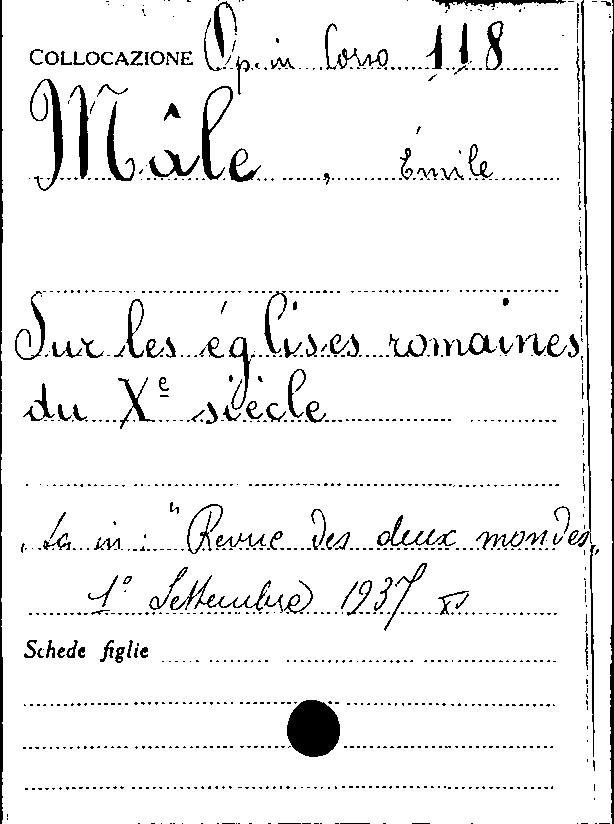 COLLOCAZIONE Op. in Corso 118
Mâle, Émile
Sur les églises romaines
du Xᵉ siècle
Sta in: "Revue des deux mondes„
1° Settembre 1937 XV
Schede figlie